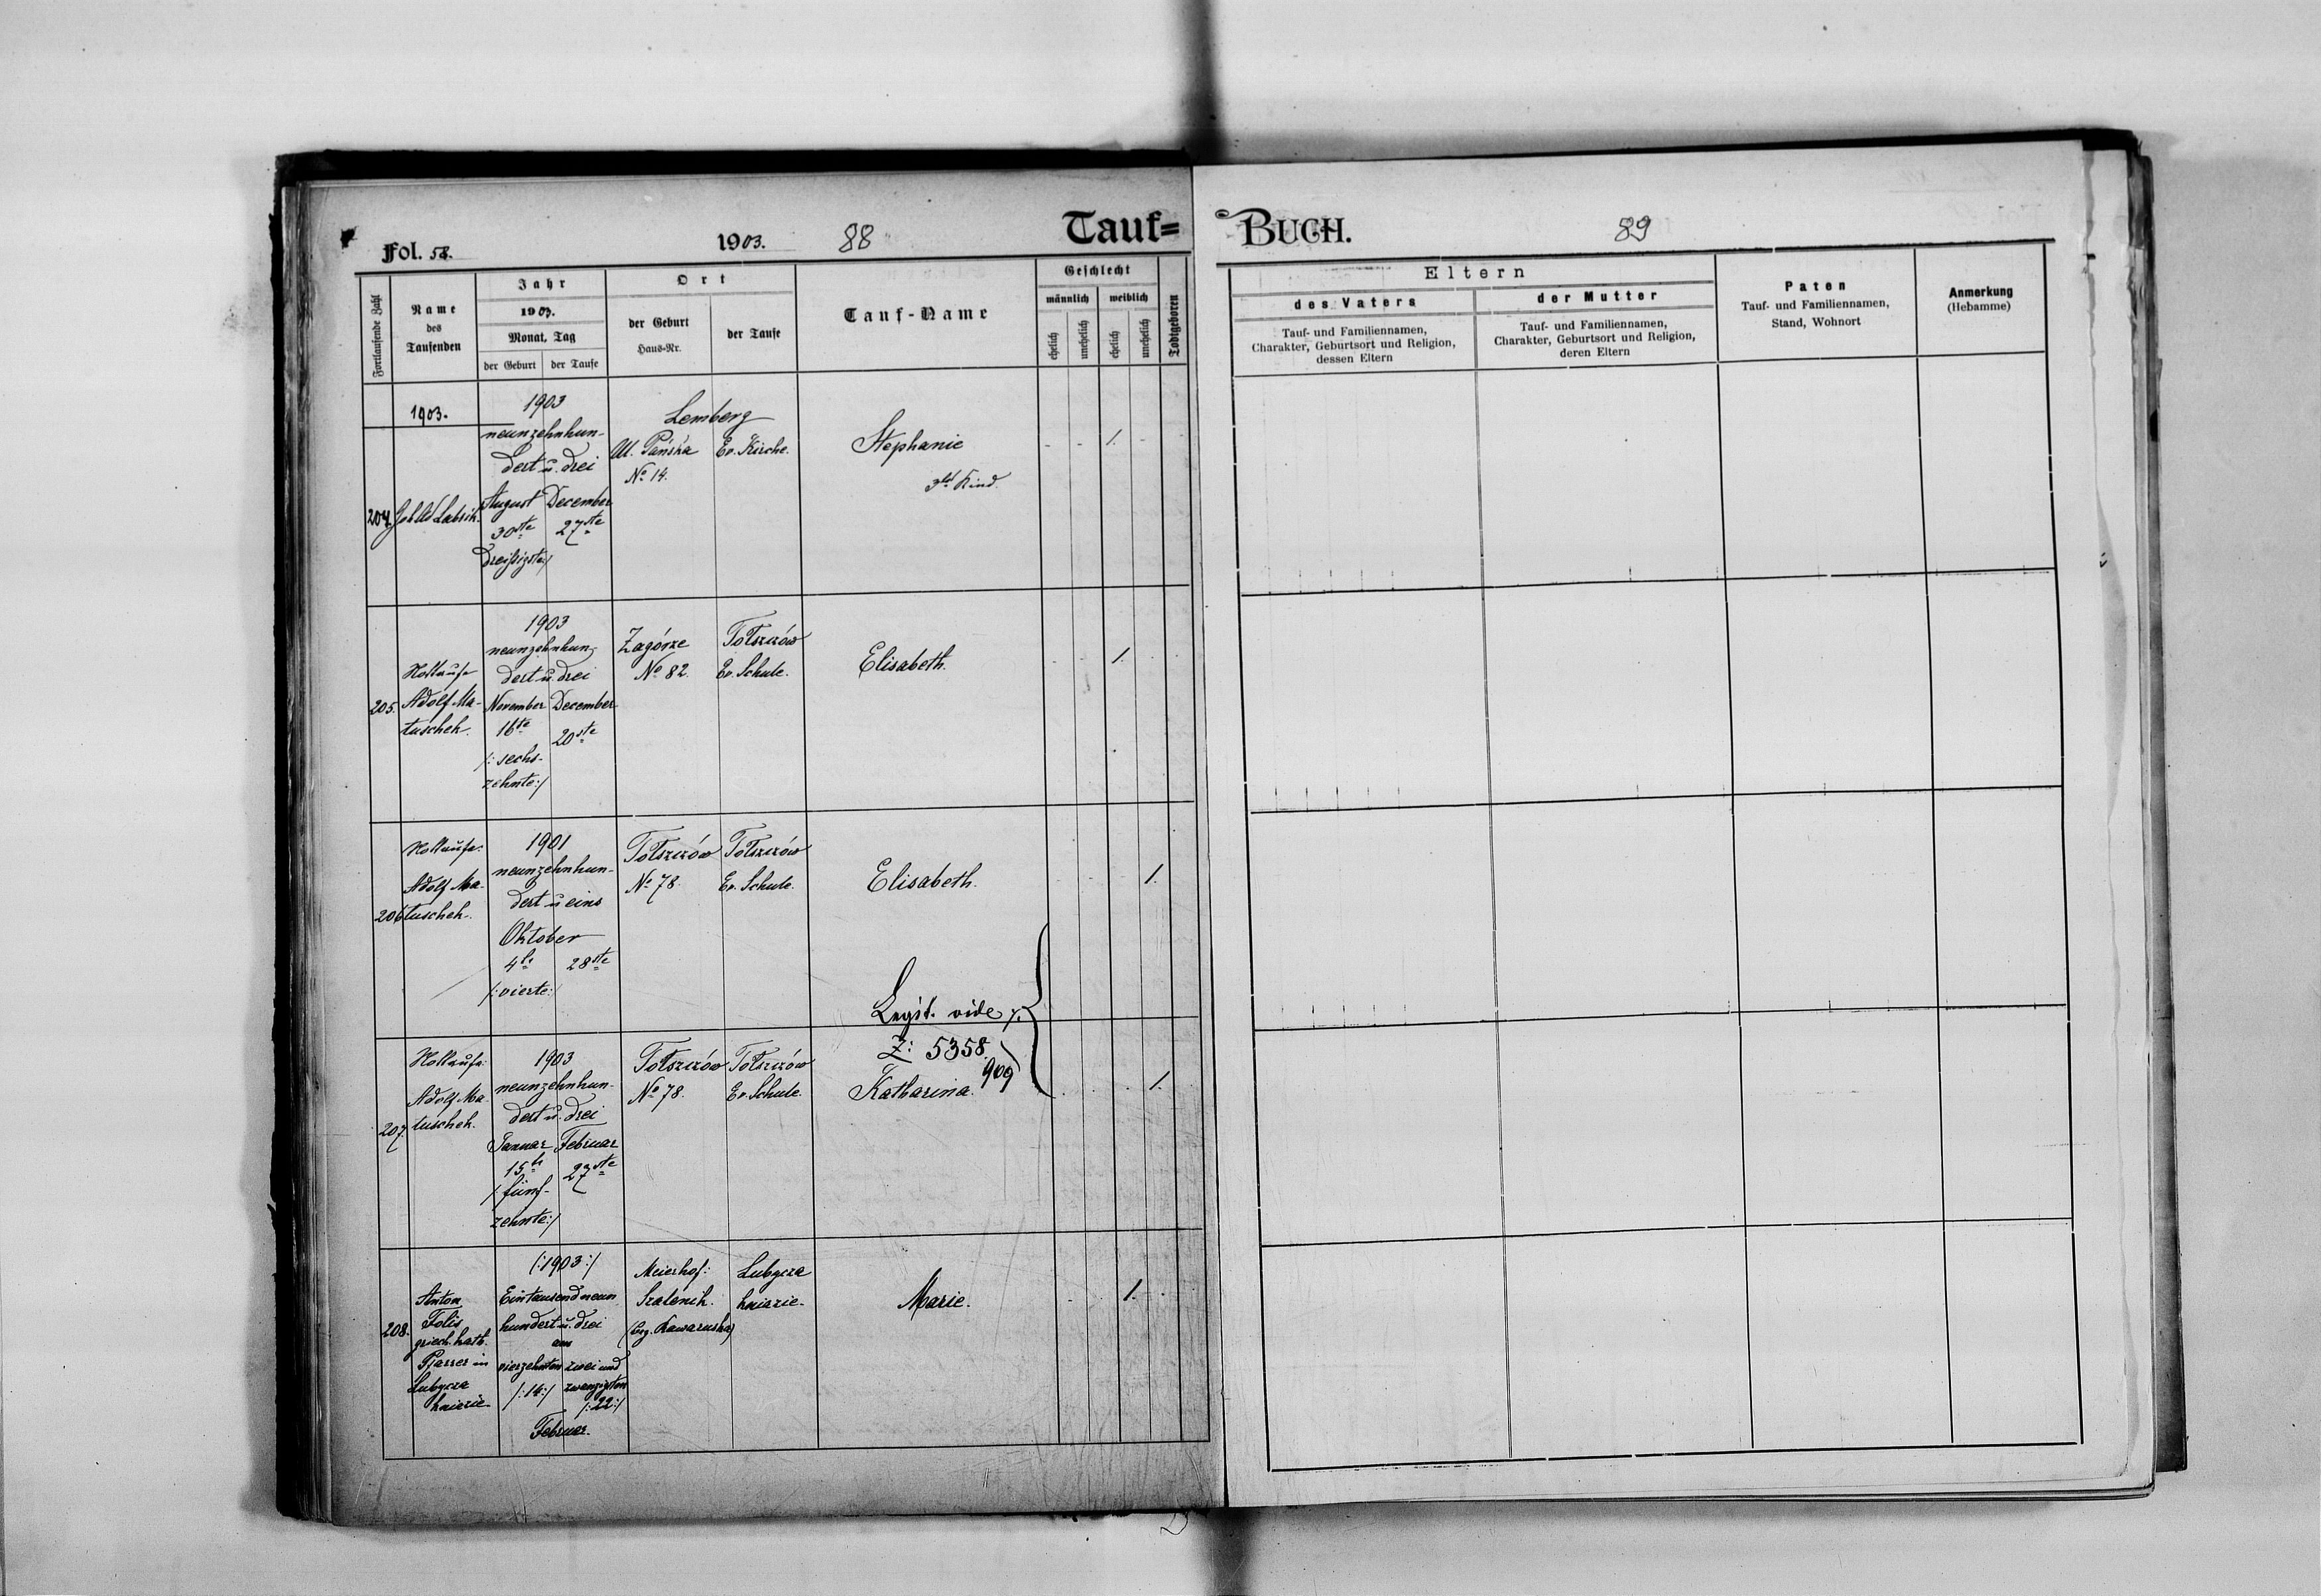 Fol. 58.
1903.
88
Tauf=
Fortlaufende Zahl
Name
des
Taufenden
Jahr
1903.
Monat, Tag
der Geburt
der Taufe
Ort
der Geburt
Haus-Nr.
der Taufe
Tauf-Name
Geschlecht
männlich
weiblich
ehelich
unehelich
ehelich
unehelich
Todtgeboren
1903.
204.
1903
neunzehnhun-
dert u. drei
August December
30ste 27ste
dreißigste:/
Lemberg
Ul. Pańska Ev. Kirche.
No 14.
Stephanie
3tes Kind.
- - 1. -
205.
Nottaufe
Adolf Ma-
tuschek.
1903
neunzehnhun-
dert u. drei
November December
16te 20ste
/: sechs-
zehnte:/
Zagórze
No 82.
Tołszczów
Ev. Schule.
Elisabeth.
- - 1. -
206
Nottaufe:
Adolf Ma-
tuschek.
1901
neunzehnhun-
dert u eins
Oktober
4te 28ste
/: vierte:/
Tołszczów
No 78.
Tołszczów
Ev. Schule.
Elisabeth.
- - - 1.
Legit. vide
Z: 5358.
909
207.
Nottaufe:
Adolf Ma-
tuschek.
1903
neunzehnhun-
dert u. drei
Januar Februar
15te 27ste
/: fünf-
zehnte:/
Tołszczów
No 78.
Tołszczów
Ev. Schule.
Katharina.
1.
208.
Anton
Folis
griech. kath.
Pfarrer in
Lubycza
kniazie
(:1903:)
Eintausendneun
hundert u. drei
am
vierzehnten zwei und
/:14:/ zwanzigsten
/:22:/
Februar.
Meierhof:
Szalenik.
Lubycza
kniazie.
Marie.
1.
BUCH.
89
Eltern
des Vaters
Tauf- und Familiennamen,
Charakter, Geburtsort und Religion,
dessen Eltern
der Mutter
Tauf- und Familiennamen,
Charakter, Geburtsort und Religion,
deren Eltern
Paten
Tauf- und Familiennamen,
Stand, Wohnort
Anmerkung
(Hebamme)